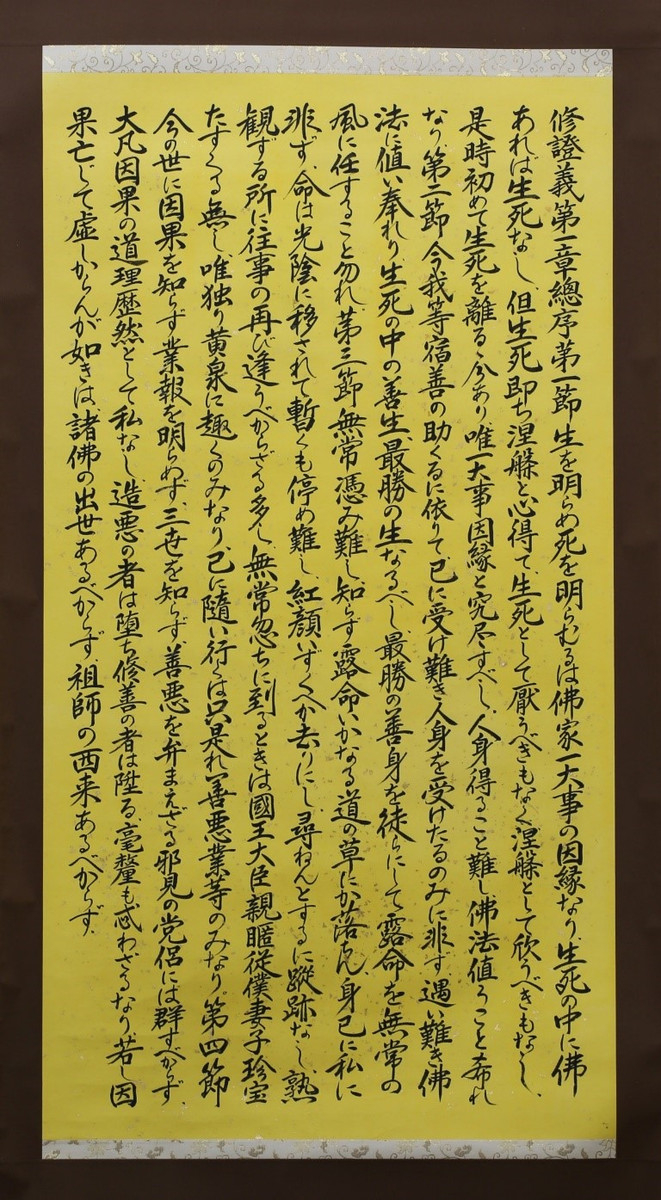 修證義第一章總序第一節生を明らめ死を明らむるは佛家一大事の因縁なり、生死の中に佛
あれば生死なし、但生死即ち涅槃と心得て、生死として厭うべきもなく涅槃として欣うべきもなし、
是時初めて生死を離るゝ分あり唯一大事因縁と究尽すべし、人身得ること難し佛法値うこと希れ
なり第二節今我等宿善の助くるに依りて、已に受け難き人身を受けたるのみに非ず遇い難き佛
法に値い奉れり生死の中の善生、最勝の生なるべし、最勝の善身を徒らにして露命を無常の
風に任すること勿れ第三節無常憑み難し、知らず露命いかなる道の草にか落ちん、身已に私に
非ず、命は光陰に移されて暫くも停め難し、紅顔いずくへか去りにし、尋ねんとするに蹤跡なし、熟
観ずる所に往事の再び逢うべからざる多し、無常忽ちに到るときは國王大臣親暱従僕妻子珍宝
たすくる無し、唯独り黄泉に趣くのみなり、己に隨い行くは只是れ善悪業等のみなり。第四節
今の世に因果を知らず業報を明らめず、三世を知らず、善悪を弁まえざる邪見の党侶には群すべからず、
大凡因果の道理歴然として私なし、造悪の者は堕ち修善の者は陞る、毫釐も忒わざるなり若し因
果亡じて虚しからんが如きは、諸佛の出世あるべからず、祖師の西来あるべからず、